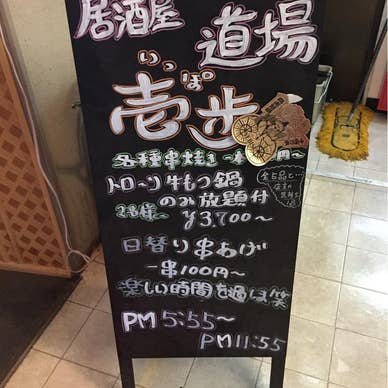 居酒屋
道場
いっぽ
壱歩
各種串焼き 一本 円〜
トローリ牛もつ鍋
のみ放題付
2名様〜 ¥3,700〜
全5品と…
日替り串あげ
一串100円〜
楽しい時間を過ごせ笑
PM 5:55〜
PM 11:55